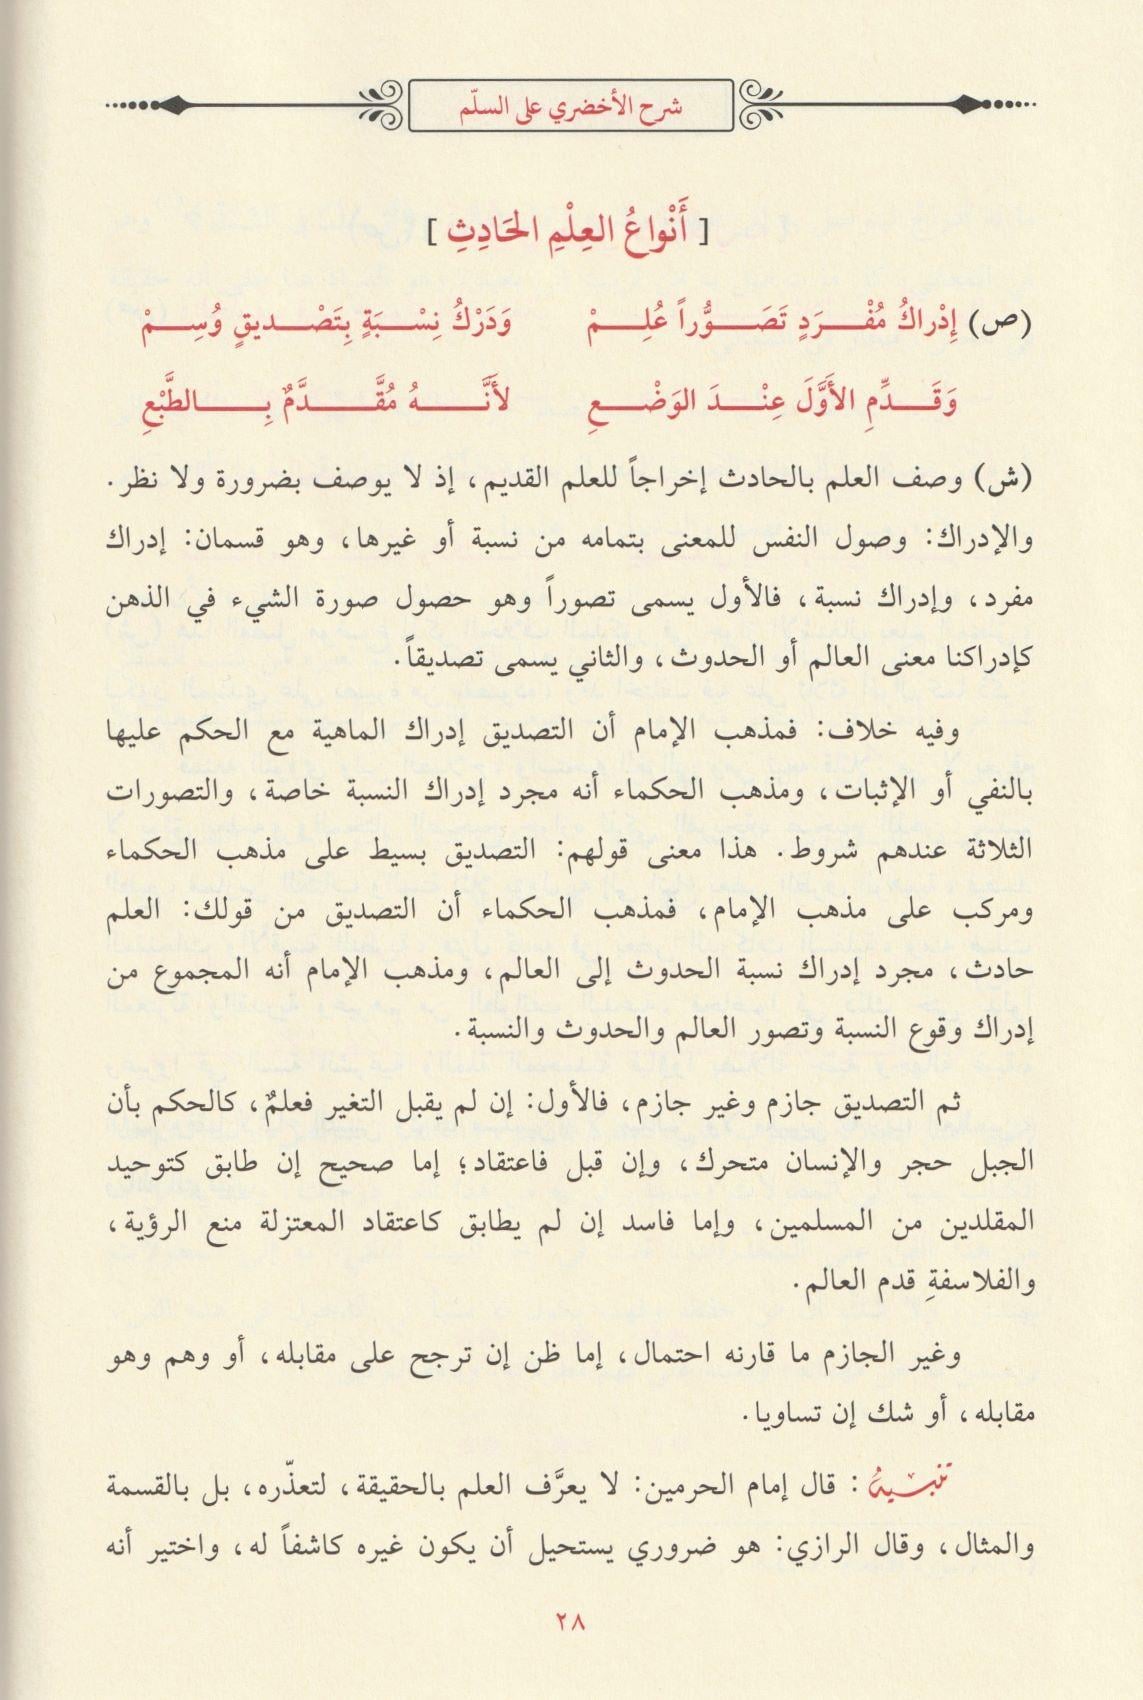 شرح الأخضري على السلّم
[ أَنْواعُ العِلْمِ الحَادِثِ ]
(ص) إِدْراكُ مُفْـــرَدٍ تَصَـــوُّراً عُلِـــمْ وَدَرْكُ نِسْـــبَةٍ بِتَصْـــديقٍ وُسِـــمْ
وَقَـــدِّمِ الأَوَّلَ عِنْـــدَ الوَضْـــعِ لأَنَّـــهُ مُقَّـــدَّمٌ بِـــالطَّبْعِ
(ش) وصف العلم بالحادث إخراجاً للعلم القديم، إذ لا يوصف بضرورة ولا نظر.
والإدراك: وصول النفس للمعنى بتمامه من نسبة أو غيرها، وهو قسمان: إدراك
مفرد، وإدراك نسبة، فالأول يسمى تصوراً وهو حصول صورة الشيء في الذهن
كإدراكنا معنى العالم أو الحدوث، والثاني يسمى تصديقاً.
وفيه خلاف: فمذهب الإمام أن التصديق إدراك الماهية مع الحكم عليها
بالنفي أو الإثبات، ومذهب الحكماء أنه مجرد إدراك النسبة خاصة، والتصورات
الثلاثة عندهم شروط. هذا معنى قولهم: التصديق بسيط على مذهب الحكماء
ومركب على مذهب الإمام، فمذهب الحكماء أن التصديق من قولك: العلم
حادث، مجرد إدراك نسبة الحدوث إلى العالم، ومذهب الإمام أنه المجموع من
إدراك وقوع النسبة وتصور العالم والحدوث والنسبة.
ثم التصديق جازم وغير جازم، فالأول: إن لم يقبل التغير فعلمٌ، كالحكم بأن
الجبل حجر والإنسان متحرك، وإن قبل فاعتقاد؛ إما صحيح إن طابق كتوحيد
المقلدين من المسلمين، وإما فاسد إن لم يطابق كاعتقاد المعتزلة منع الرؤية،
والفلاسفةِ قدم العالم.
وغير الجازم ما قارنه احتمال، إما ظن إن ترجح على مقابله، أو وهم وهو
مقابله، أو شك إن تساويا.
تنبيهٌ: قال إمام الحرمين: لا يعرَّف العلم بالحقيقة، لتعذّره، بل بالقسمة
والمثال، وقال الرازي: هو ضروري يستحيل أن يكون غيره كاشفاً له، واختير أنه
٢٨